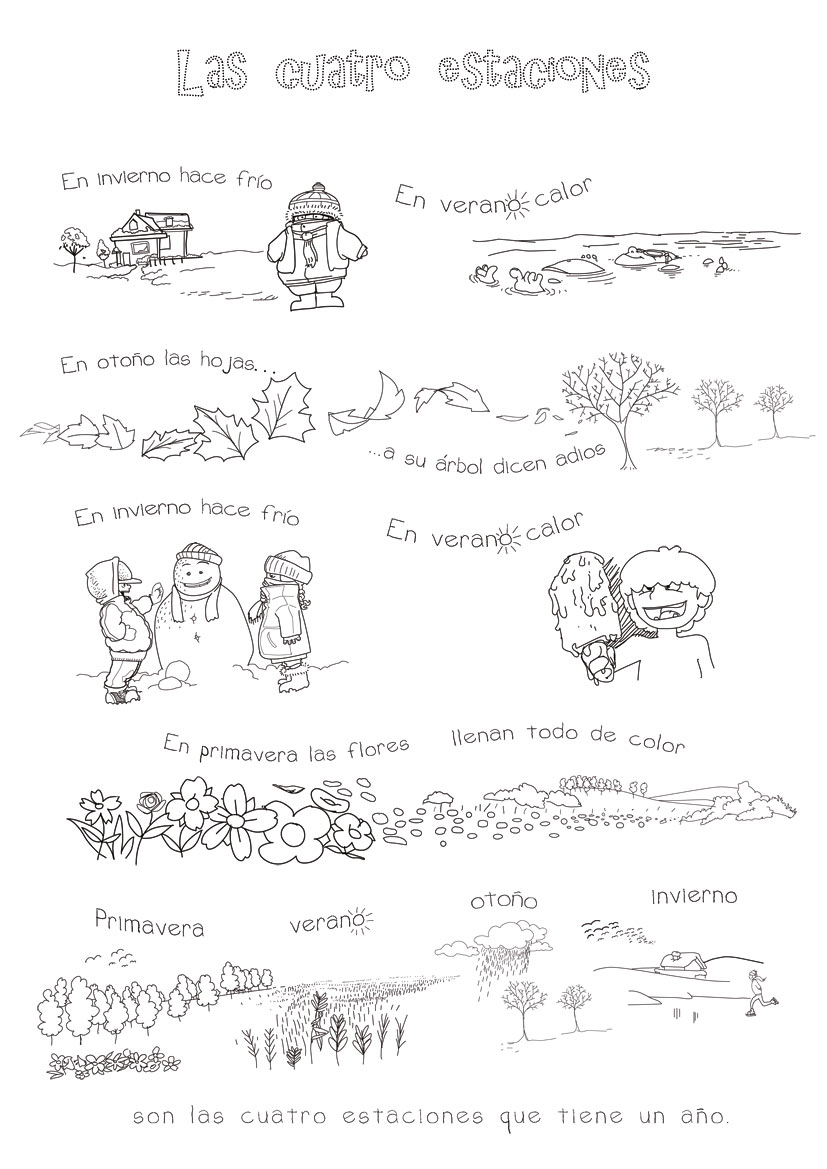 Las cuatro estaciones
En invierno hace frío
En verano calor
En otoño las hojas...
...a su árbol dicen adios
En invierno hace frío
En verano calor
En primavera las flores
llenan todo de color
Primavera
verano
otoño
invierno
son las cuatro estaciones que tiene un año.